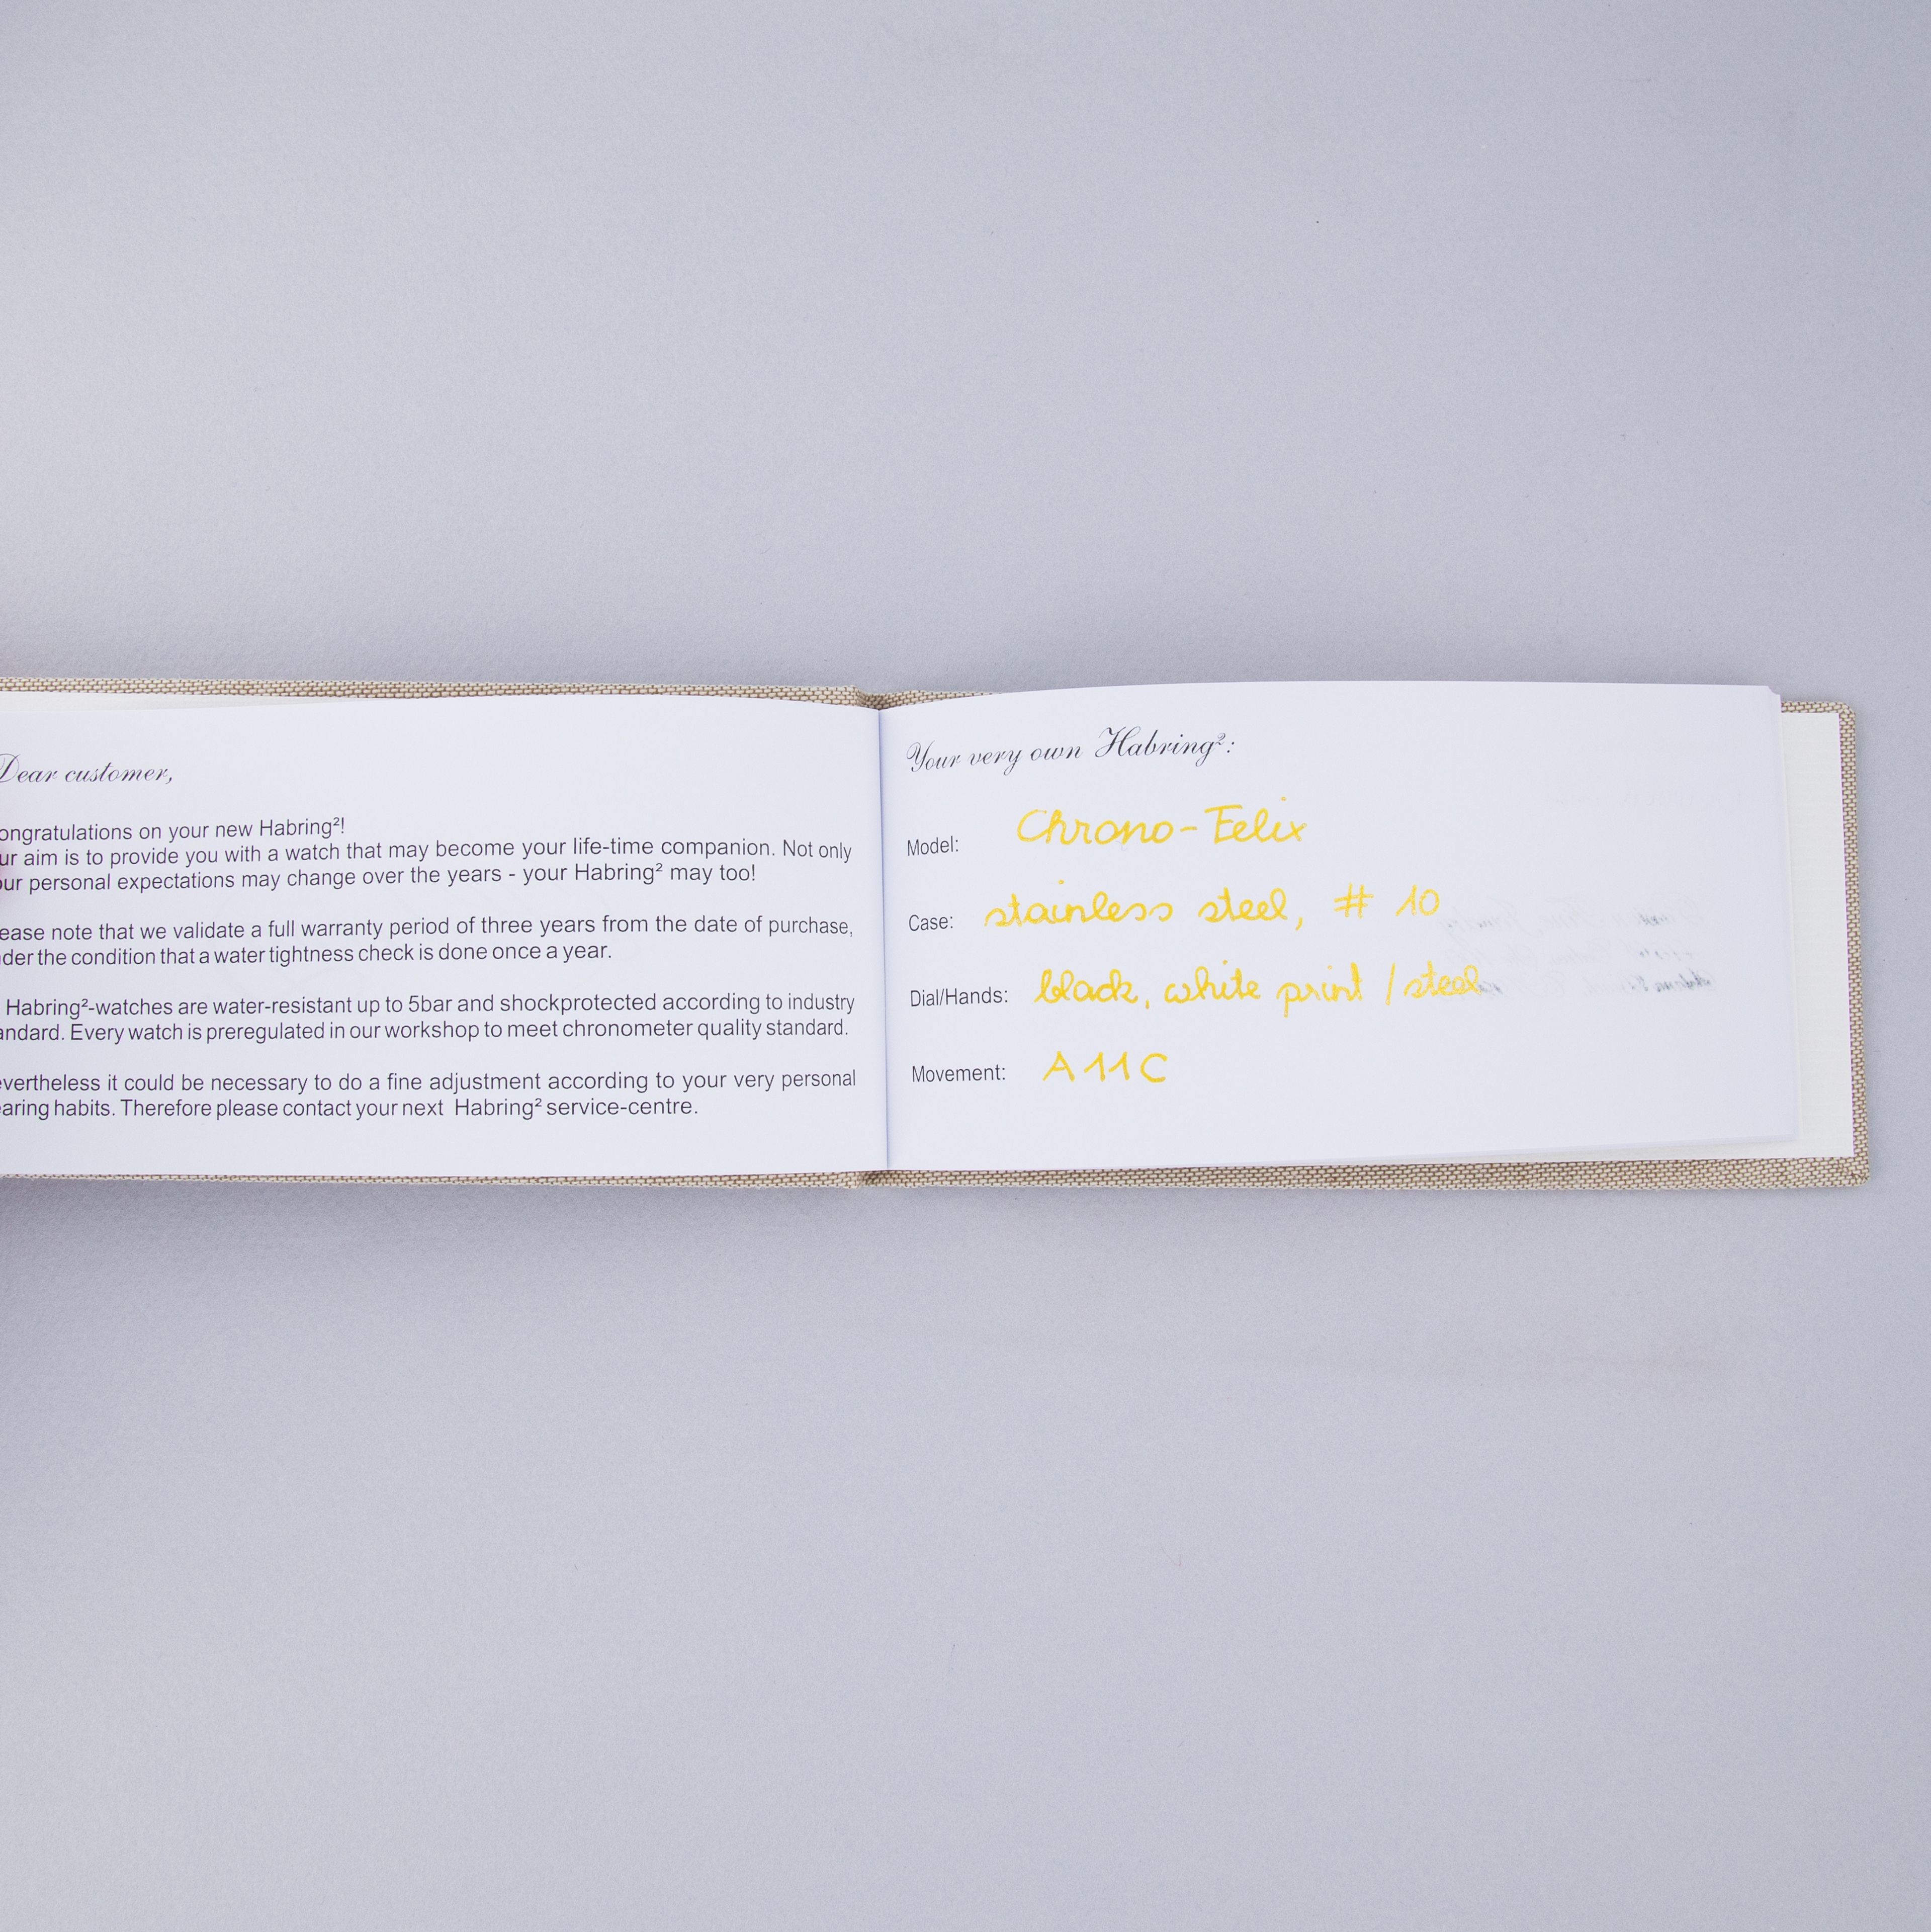 Dear customer,
ongratulations on your new Habring²!
ur aim is to provide you with a watch that may become your life-time companion. Not only
our personal expectations may change over the years - your Habring² may too!
ease note that we validate a full warranty period of three years from the date of purchase,
der the condition that a water tightness check is done once a year.
Habring²-watches are water-resistant up to 5bar and shockprotected according to industry
andard. Every watch is preregulated in our workshop to meet chronometer quality standard.
evertheless it could be necessary to do a fine adjustment according to your very personal
earing habits. Therefore please contact your next Habring² service-centre.
Your very own Habring²:
Model: Chrono-Felix
Case: stainless steel, # 10
Dial/Hands: black, white print / steel
Movement: A11C